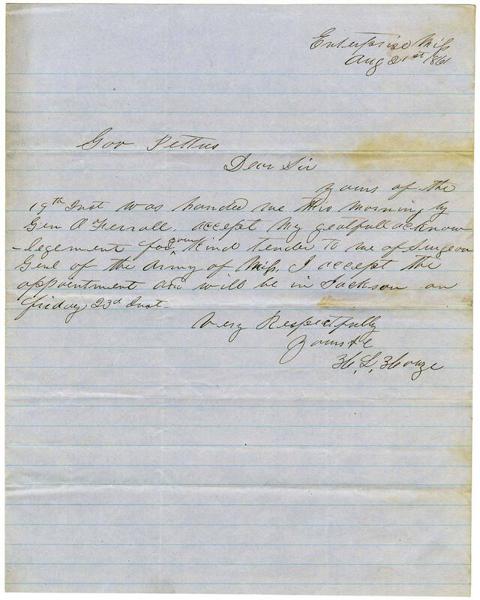 Enterprise Miss
Aug 21st 1861
Gov Pettus
Dear Sir
Yours of the
19th Inst was handed me this morning by
Gen O Ferrall. accept my gratfull acknow
-legement for your kind tender to me of Surgeon
Genl of the Army of Miss, I accept the
appointment and will be in Jackson on
friday 23d Inst.
Very Respectfully
Yours &c